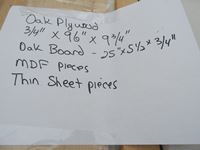 Oak Plywood
3/4" x 96" x 9 3/4"
Oak Board - 25" x 5 1/2 x 3/4"
MDF pieces
Thin Sheet pieces